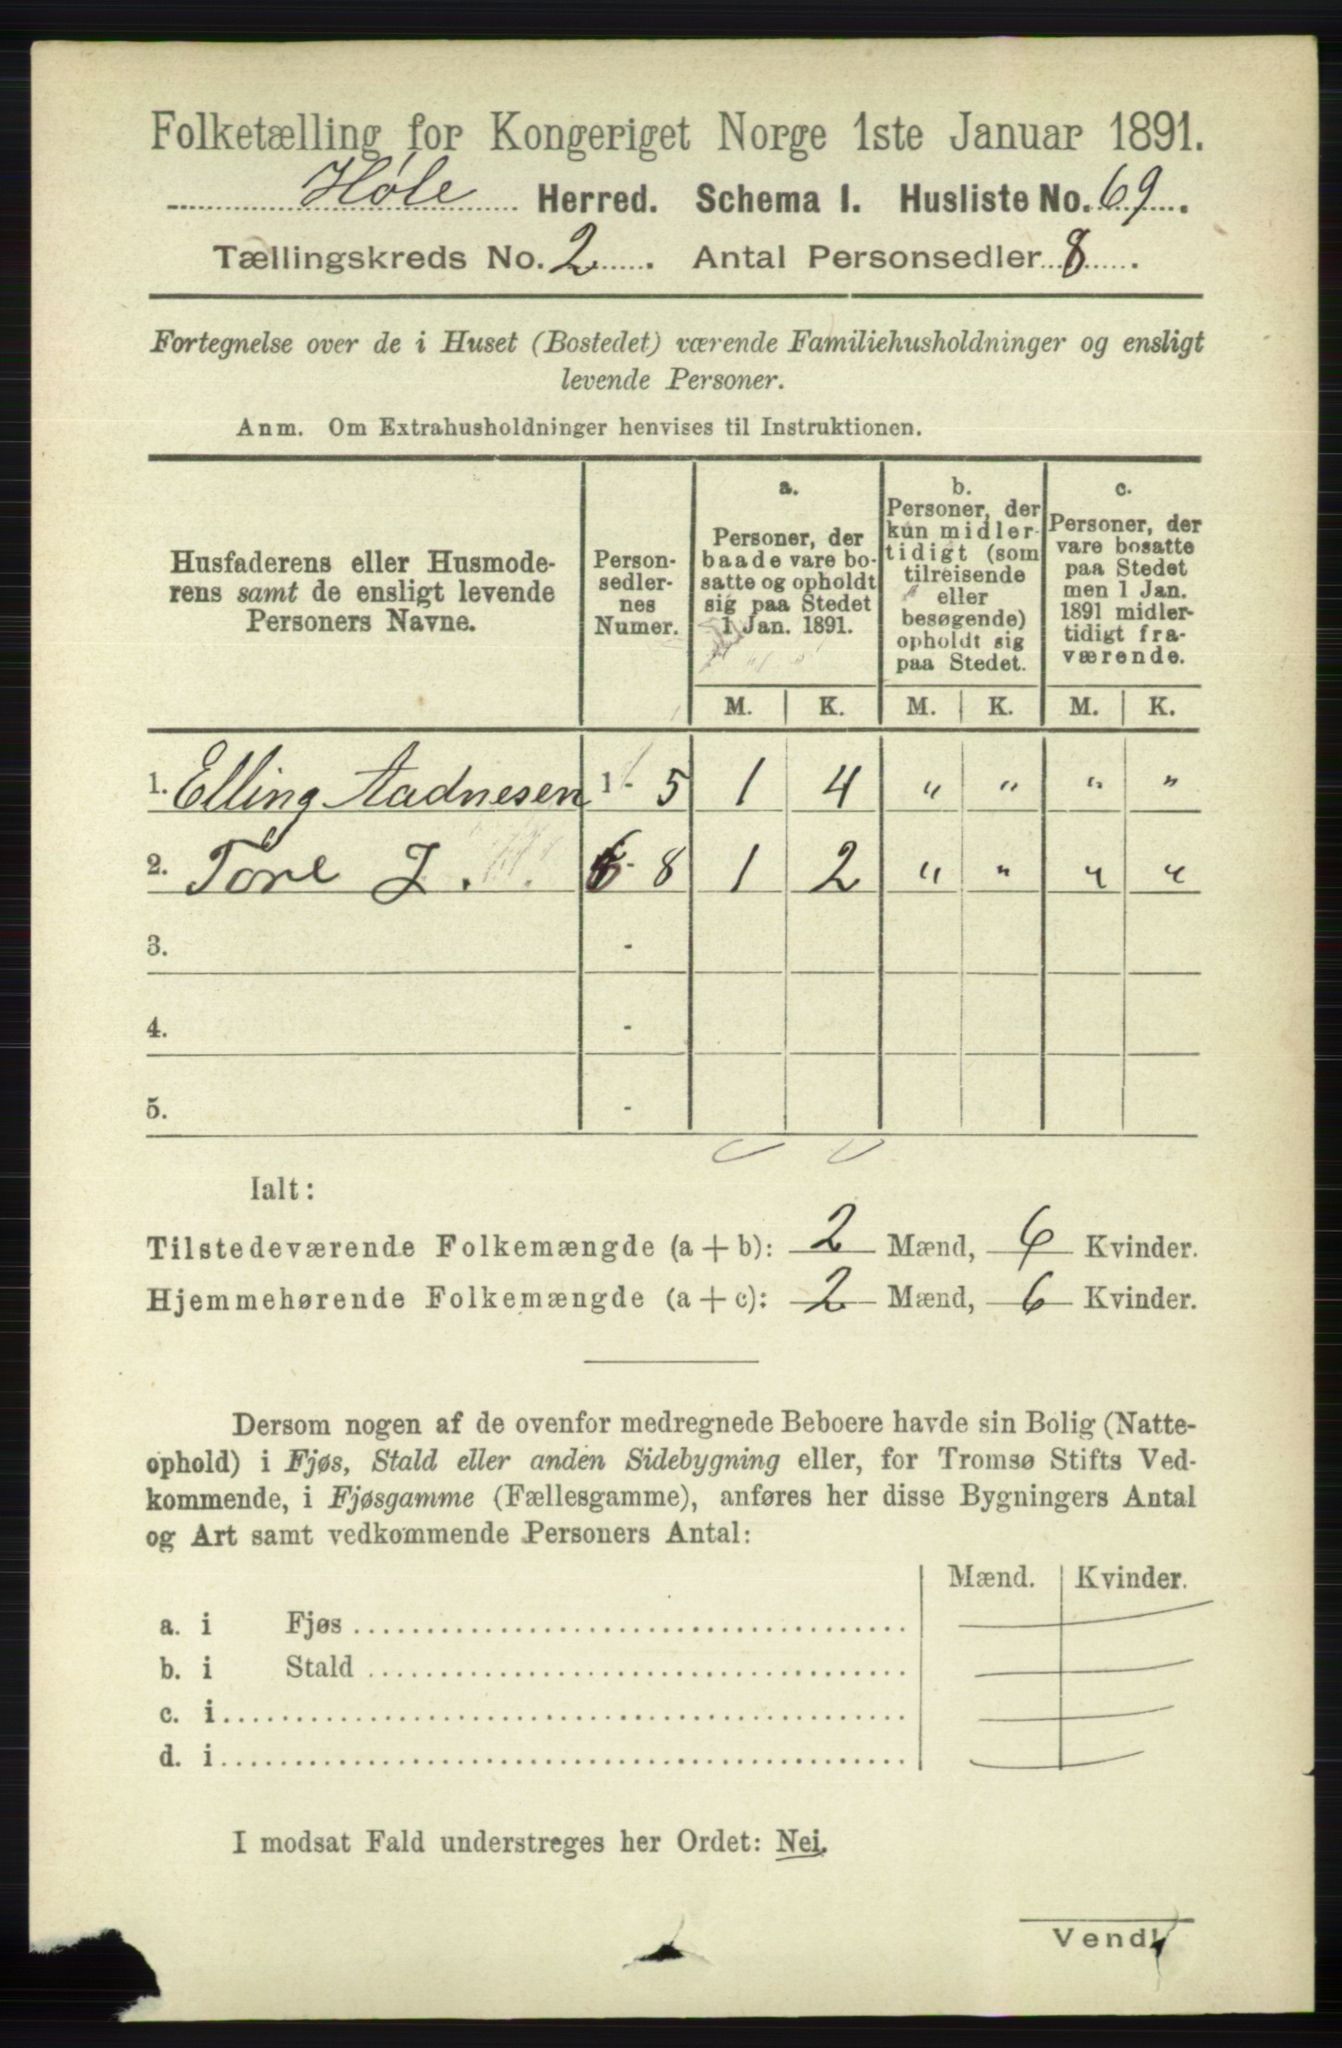 Folketælling for Kongeriget Norge 1ste Januar 1891.
Høle Herred. Schema I. Husliste No. 69.
Tællingskreds No. 2. Antal Personsedler 8.
Fortegnelse over de i Huset (Bostedet) værende Familiehusholdninger og ensligt
levende Personer.
Anm. Om Extrahusholdninger henvises til Instruktionen.
Husfaderens eller Husmode-
rens samt de ensligt levende
Personers Navne.
Person-
sedler-
nes
Numer.
a.
Personer, der
baade vare bo-
satte og opholdt
sig paa Stedet
1 Jan. 1891.
b.
Personer, der
kun midler-
tidigt (som
tilreisende
eller
besøgende)
opholdt sig
paa Stedet.
c.
Personer, der
vare bosatte
paa Stedet
men 1 Jan.
1891 midler-
tidigt fra-
værende.
M. K. M. K. M. K.
1. Elling Aadnesen 1 - 5 1 4 " " " "
2. Tore J. 6 - 8 1 2 " " " "
3. -
4. -
5. -
Ialt:
Tilstedeværende Folkemængde (a + b): 2 Mænd, 6 Kvinder.
Hjemmehørende Folkemængde (a + c): 2 Mænd, 6 Kvinder.
Dersom nogen af de ovenfor medregnede Beboere havde sin Bolig (Natte-
ophold) i Fjøs, Stald eller anden Sidebygning eller, for Tromsø Stifts Ved-
kommende, i Fjøsgamme (Fællesgamme), anføres her disse Bygningers Antal
og Art samt vedkommende Personers Antal:
Mænd. Kvinder.
a. i Fjøs
b. i Stald
c. i
d. i
I modsat Fald understreges her Ordet: Nei.
Vend!